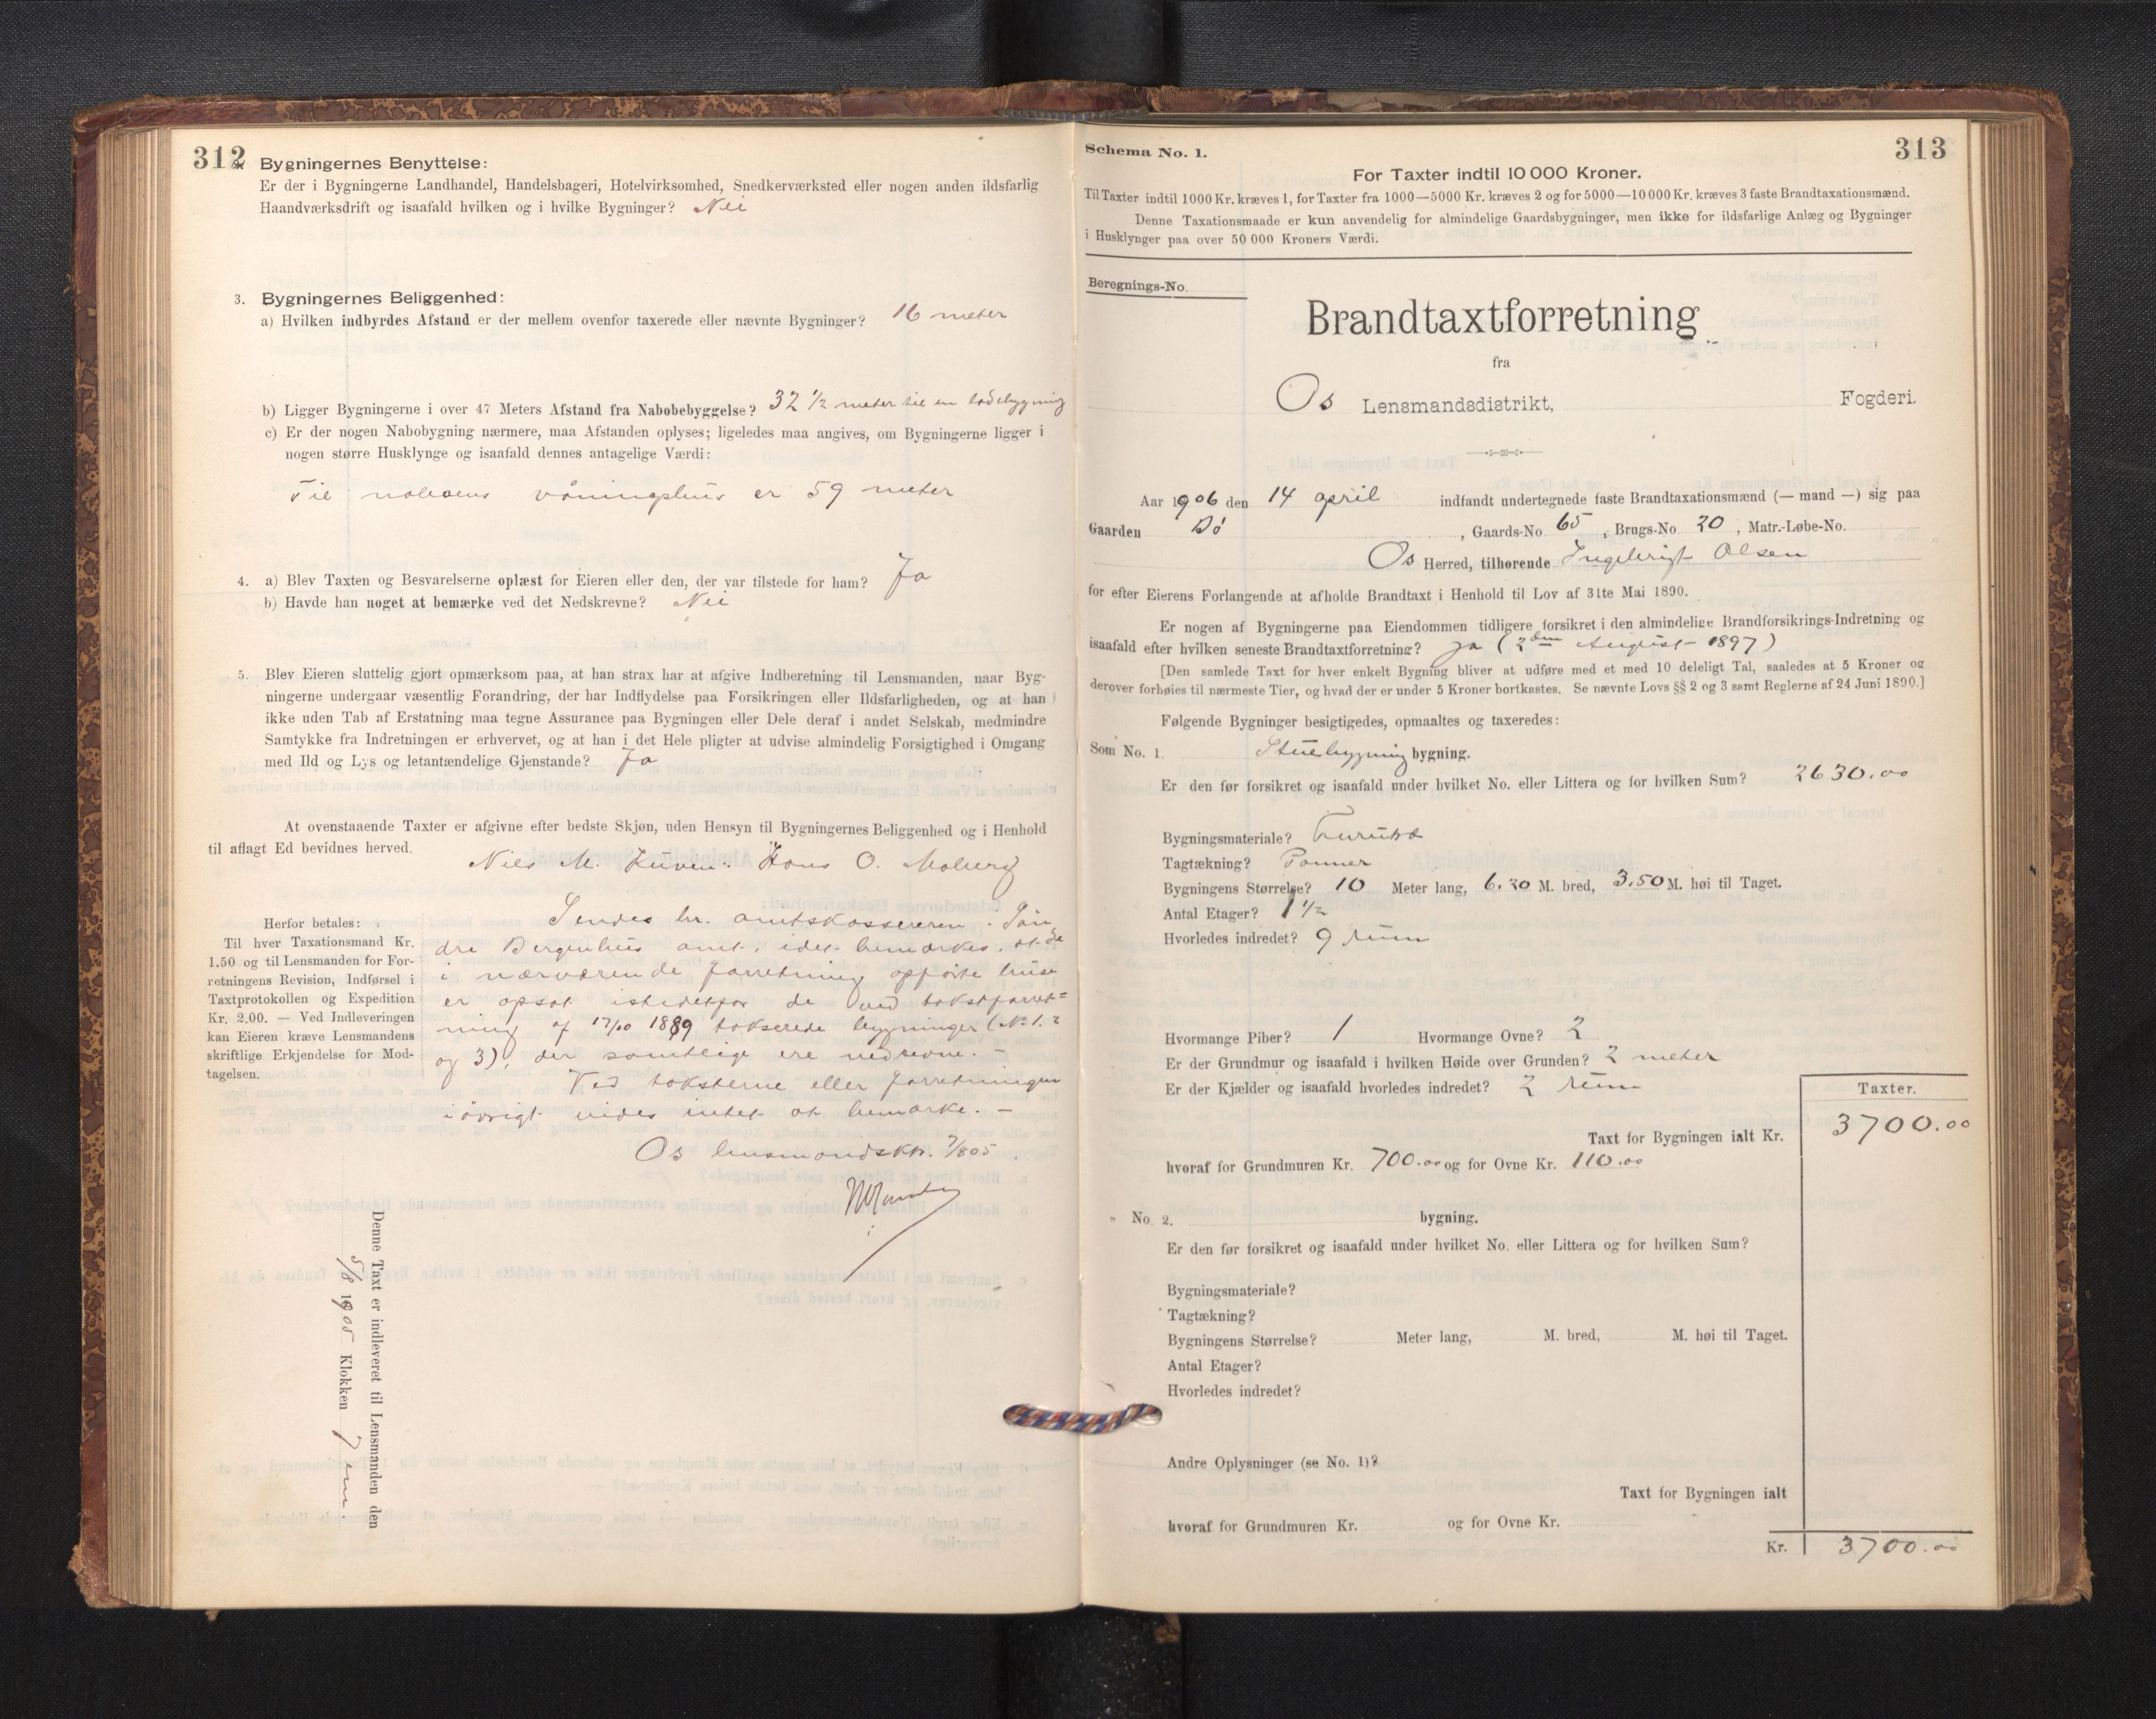 312
2. Bygningernes Benyttelse:
Er der i Bygningerne Landhandel, Handelsbageri, Hotelvirksomhed, Snedkerværksted eller nogen anden ildsfarlig
Haandværksdrift og isaafald hvilken og i hvilke Bygninger? Nei
3. Bygningernes Beliggenhed:
a) Hvilken indbyrdes Afstand er der mellem ovenfor taxerede eller nævnte Bygninger? 16 meter
b) Ligger Bygningerne i over 47 Meters Afstand fra Nabobebyggelse? 32 1/2 meter til en ladebygning
c) Er der nogen Nabobygning nærmere, maa Afstanden oplyses; ligeledes maa angives, om Bygningerne ligger i
nogen større Husklynge og isaafald dennes antagelige Værdi:
Til naboens våningshus er 59 meter
4. a) Blev Taxten og Besvarelserne oplæst for Eieren eller den, der var tilstede for ham? Ja
b) Havde han noget at bemærke ved det Nedskrevne? Nei
5. Blev Eieren sluttelig gjort opmærksom paa, at han strax har at afgive Indberetning til Lensmanden, naar Byg-
ningerne undergaar væsentlig Forandring, der har Indflydelse paa Forsikringen eller Ildsfarligheden, og at han
ikke uden Tab af Erstatning maa tegne Assurance paa Bygningen eller Dele deraf i andet Selskab, medmindre
Samtykke fra Indretningen er erhvervet, og at han i det Hele pligter at udvise almindelig Forsigtighed i Omgang
med Ild og Lys og letantændelige Gjenstande? Ja
At ovenstaaende Taxter er afgivne efter bedste Skjøn, uden Hensyn til Bygningernes Beliggenhed og i Henhold
til aflagt Ed bevidnes herved.
Niels M. Kuven. Hans O. Moberg
Herfor betales:
Til hver Taxationsmand Kr.
1.50 og til Lensmanden for For-
retningens Revision, Indførsel i
Taxtprotokollen og Expedition
Kr. 2.00. — Ved Indleveringen
kan Eieren kræve Lensmandens
skriftlige Erkjendelse for Mod-
tagelsen.
Sendes hr. amtskassereren i Søn-
dre Bergenhus amt, idet bemærkes, at de
i nærværende forretning opførte huse
er opsat istedetfor de ved takstforret=
ning af 17/10 1889 takserede bygninger (No 1. 2
og 3), der samtlige ere nedrevne. -
Ved taksterne eller forretningen
iøvrigt vides intet at bemærke. -
Os lensmandskt. 7/8 05.
Denne Taxt er indleveret til Lensmanden den
5/8 1905 Klokken 7 em.
313
Schema No. 1.
For Taxter indtil 10 000 Kroner.
Til Taxter indtil 1000 Kr. kræves 1, for Taxter fra 1000—5000 Kr. kræves 2 og for 5000—10 000 Kr. kræves 3 faste Brandtaxationsmænd.
Denne Taxationsmaade er kun anvendelig for almindelige Gaardsbygninger, men ikke for ildsfarlige Anlæg og Bygninger
i Husklynger paa over 50 000 Kroners Værdi.
Beregnings-No.
Brandtaxtforretning
fra
Os Lensmandsdistrikt, Fogderi.
Aar 1906 den 14 april indfandt undertegnede faste Brandtaxationsmænd (— mand —) sig paa
Gaarden Bø , Gaards-No. 65, Brugs-No. 20, Matr.-Løbe-No.
Os Herred, tilhørende Ingebrigt Olsen
for efter Eierens Forlangende at afholde Brandtaxt i Henhold til Lov af 31te Mai 1890.
Er nogen af Bygningerne paa Eiendommen tidligere forsikret i den almindelige Brandforsikrings-Indretning og
isaafald efter hvilken seneste Brandtaxtforretning? Ja (2den August 1897)
[Den samlede Taxt for hver enkelt Bygning bliver at udføre med et med 10 deleligt Tal, saaledes at 5 Kroner og
derover forhøies til nærmeste Tier, og hvad der er under 5 Kroner bortkastes. Se nævnte Lovs §§ 2 og 3 samt Reglerne af 24 Juni 1890.]
Følgende Bygninger besigtigedes, opmaaltes og taxeredes:
Som No. 1. Stuebygning bygning.
Er den før forsikret og isaafald under hvilket No. eller Littera og for hvilken Sum? 2630.00
Bygningsmateriale? Furutræ
Tagtækning? Panner
Bygningens Størrelse? 10 Meter lang, 6.30 M. bred, 3.50 M. høi til Taget.
Antal Etager? 1 1/2
Hvorledes indredet? 9 rum
Hvormange Piber? 1 Hvormange Ovne? 2
Er der Grundmur og isaafald i hvilken Høide over Grunden? 2 meter
Er der Kjælder og isaafald hvorledes indredet? 2 rum
Taxter.
Taxt for Bygningen ialt Kr. 3700.00
hvoraf for Grundmuren Kr. 700.00 og for Ovne Kr. 110.00
„ No. 2. bygning.
Er den før forsikret og isaafald under hvilket No. eller Littera og for hvilken Sum?
Bygningsmateriale?
Tagtækning?
Bygningens Størrelse? Meter lang, M. bred, M. høi til Taget.
Antal Etager?
Hvorledes indredet?
Andre Oplysninger (se No. 1)?
Taxt for Bygningen ialt
hvoraf for Grundmuren Kr. og for Ovne Kr.
Kr. 3700.00